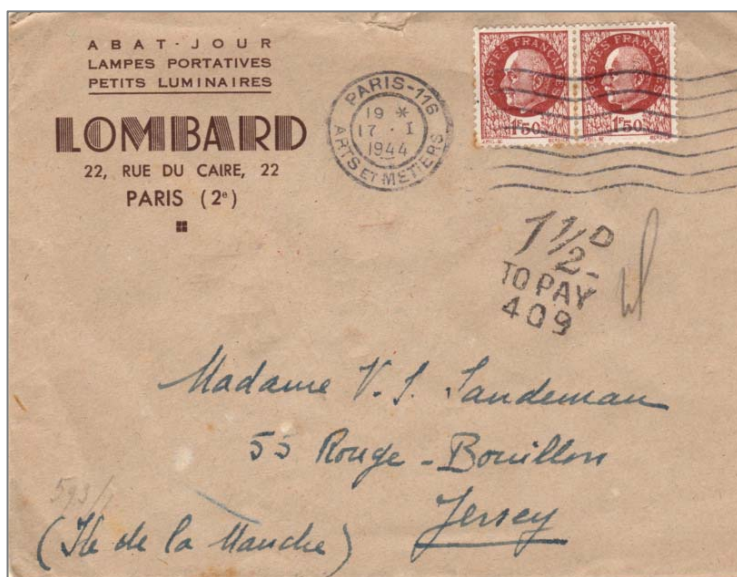 ABAT-JOUR
LAMPES PORTATIVES
PETITS LUMINAIRES
LOMBARD
22, RUE DU CAIRE, 22
PARIS (2e)
PARIS-116
19 *
17 · I
1944
ARTS ET METIERS
POSTES FRANÇAISES
1F50
POSTES FRANÇAISES
1F50
1½D
TO PAY
409
Madame V. S. Sandeman
55 Rouge-Bouillon
Jersey
(Ile de la Manche)
593/1